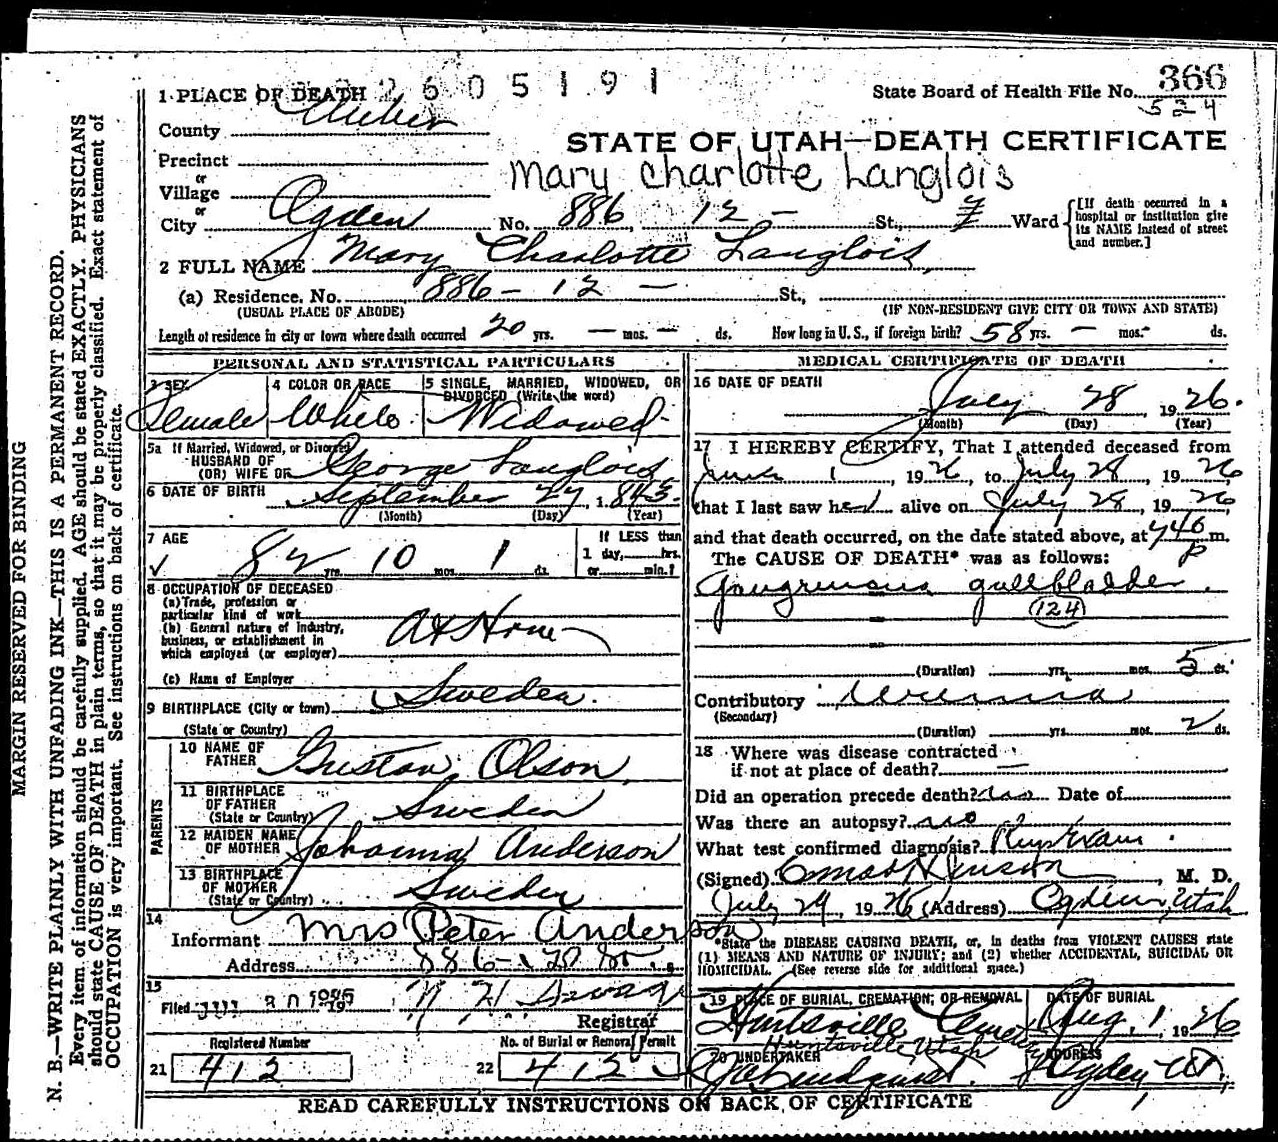 2605191
1 PLACE OF DEATH
County Weber
State Board of Health File No. 366
524
STATE OF UTAH—DEATH CERTIFICATE
Mary Charlotte Langlois
Precinct
or
Village
or
City Ogden No. 886 12 - St., 7 Ward
[If death occurred in a
hospital or institution give
its NAME instead of street
and number.]
2 FULL NAME Mary Charlotte Langlois
(a) Residence. No. 886 - 12 - St.,
(USUAL PLACE OF ABODE) (IF NON-RESIDENT GIVE CITY OR TOWN AND STATE)
Length of residence in city or town where death occurred 20 yrs. — mos. — ds. How long in U. S., if foreign birth? 58 yrs. — mos. ds.
PERSONAL AND STATISTICAL PARTICULARS
3 SEX
Female
4 COLOR OR RACE
White
5 SINGLE, MARRIED, WIDOWED, OR
DIVORCED (Write the word)
Widowed
5a If Married, Widowed, or Divorced
HUSBAND OF
(OR) WIFE OF George Langlois
6 DATE OF BIRTH September 27, 1843
(Month) (Day) (Year)
7 AGE
82 yrs. 10 mos. 1 ds.
If LESS than
1 day, hrs.
or min.?
8 OCCUPATION OF DECEASED
(a) Trade, profession or
particular kind of work
(b) General nature of industry,
business, or establishment in
which employed (or employer)
At Home
(c) Name of Employer
9 BIRTHPLACE (City or town) Sweden.
(State or Country)
PARENTS
10 NAME OF
FATHER Gustav Olson
11 BIRTHPLACE
OF FATHER
(State or Country) Sweden
12 MAIDEN NAME
OF MOTHER Johanna Anderson
13 BIRTHPLACE
OF MOTHER
(State or Country) Sweden
14
Informant Mrs Peter Anderson
Address 886
15
Filed JUL 30 1926 19
Registrar
Registered Number
21 412
No. of Burial or Removal Permit
22 412
MEDICAL CERTIFICATE OF DEATH
16 DATE OF DEATH
July 28, 1926.
(Month) (Day) (Year)
17 I HEREBY CERTIFY, That I attended deceased from
June 1 1926, to July 28, 1926,
that I last saw her alive on July 28, 1926,
and that death occurred, on the date stated above, at 740 P m.
The CAUSE OF DEATH* was as follows:
Gangrenous gallbladder.
(124)
(Duration) yrs. mos. 5 ds.
Contributory Uremia
(Secondary)
(Duration) yrs. mos. 2 ds.
18 Where was disease contracted
if not at place of death? —
Did an operation precede death? no Date of
Was there an autopsy? no
What test confirmed diagnosis? Phys Exam.
(Signed) , M. D.
July 29, 1926 (Address) Ogden, Utah
*State the DISEASE CAUSING DEATH, or, in deaths from VIOLENT CAUSES state
(1) MEANS AND NATURE OF INJURY; and (2) whether ACCIDENTAL, SUICIDAL OR
HOMICIDAL. (See reverse side for additional space.)
19 PLACE OF BURIAL, CREMATION, OR REMOVAL
Huntsville Cemetery
Huntsville Utah
DATE OF BURIAL
Aug. 1 1926
20 UNDERTAKER
Lindquist.
ADDRESS
Ogden, Ut.
READ CAREFULLY INSTRUCTIONS ON BACK OF CERTIFICATE
MARGIN RESERVED FOR BINDING
N. B.—WRITE PLAINLY WITH UNFADING INK—THIS IS A PERMANENT RECORD.
Every item of information should be carefully supplied. AGE should be stated EXACTLY. PHYSICIANS
should state CAUSE OF DEATH in plain terms, so that it may be properly classified. Exact statement of
OCCUPATION is very important. See instructions on back of certificate.